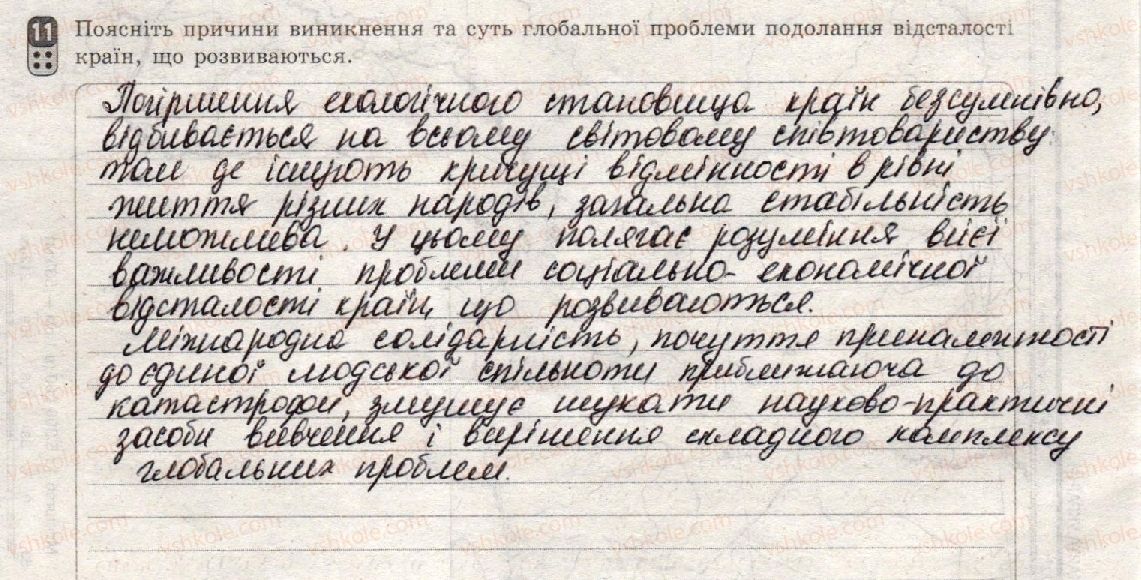 11 Поясніть причини виникнення та суть глобальної проблеми подолання відсталості
країн, що розвиваються.
Погіршення екологічного становища країн безсумнівно,
відбивається на всьому світовому співтовариству
там де існують кричущі відмінності в рівні
життя різних народів, загальна стабільність
неможлива. У цьому полягає розуміння всієї
важливості проблеми соціально-економічної
відсталості країн, що розвиваються.
Міжнародна солідарність, почуття приналежності
до єдиної людської спільноти приближаюча до
катастрофи, змушує шукати науково-практичні
засоби вивчення і вирішення складного комплексу
глобальних проблем.